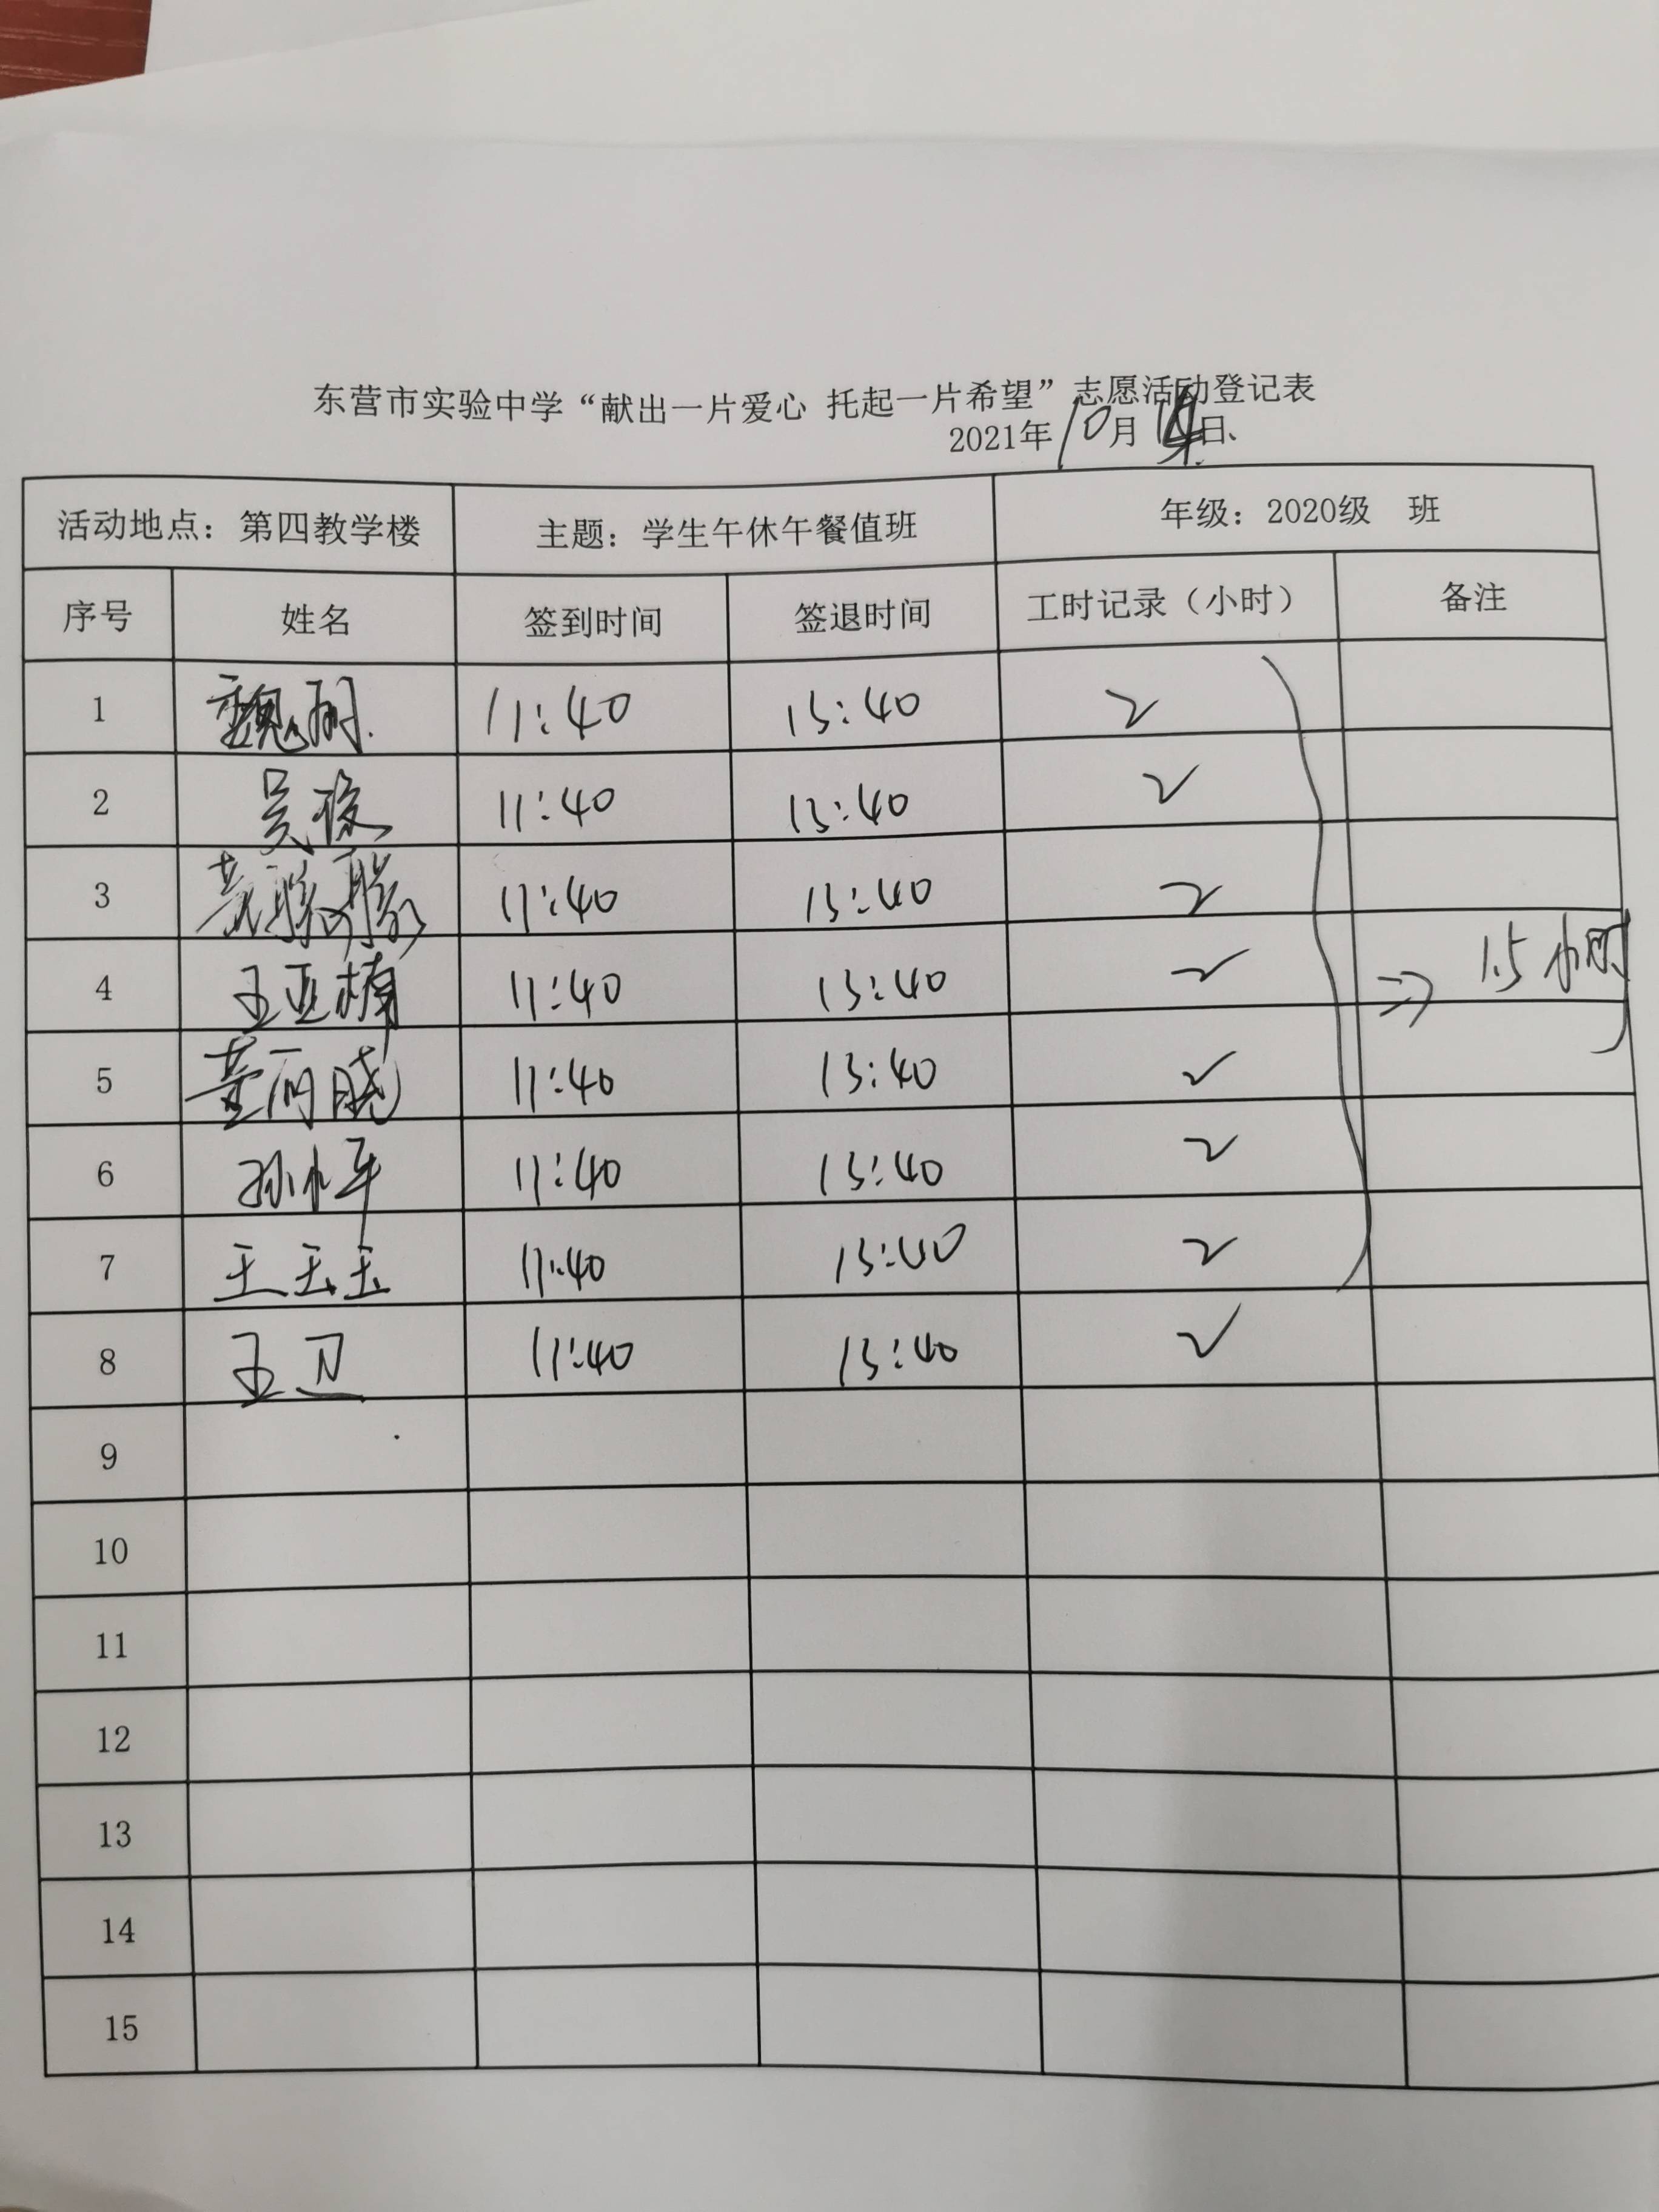 东营市实验中学“献出一片爱心 托起一片希望”志愿活动登记表
2021年10月 日
活动地点：第四教学楼 主题：学生午休午餐值班 年级：2020级 班
序号 姓名 签到时间 签退时间 工时记录（小时） 备注
1 魏丽 11:40 13:40 2
2 吴 11:40 13:40 2
3 11:40 13:40 2
4 王亚楠 11:40 13:40 2 ⇒ 1.5小时
5 董丽晓 11:40 13:40 2
6 孙小平 11:40 13:40 2
7 王玉玉 11:40 13:40 2
8 王卫 11:40 13:40 2
9
10
11
12
13
14
15